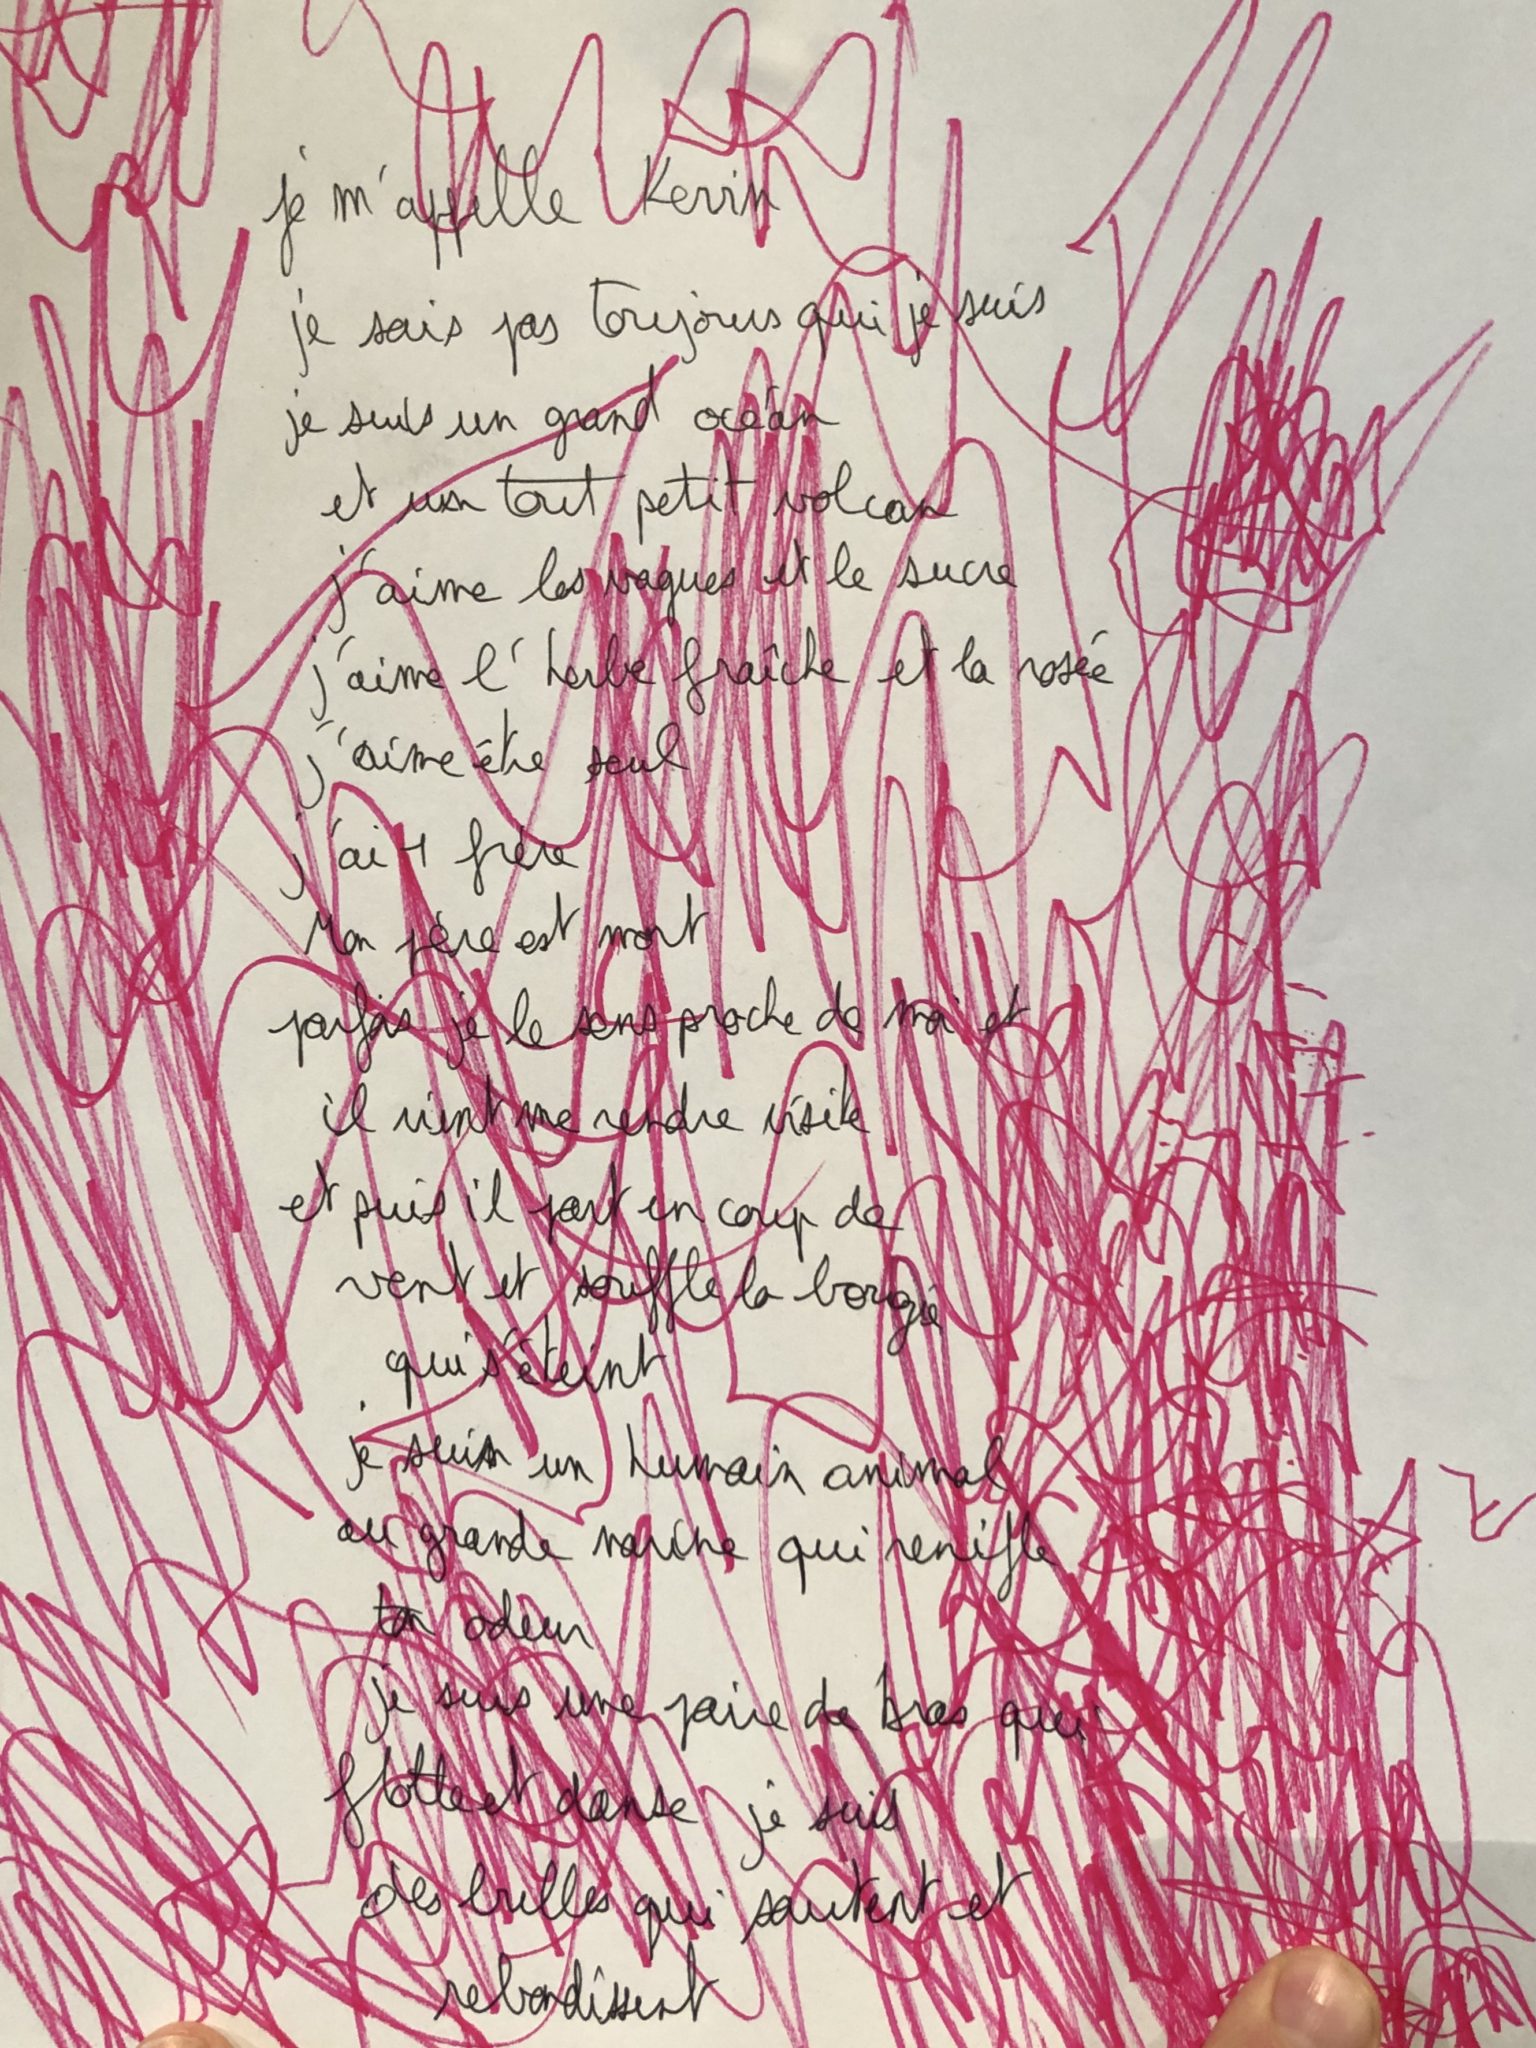 je m'appelle Kevin
je sais pas toujours qui je suis
je suis un grand océan
et un tout petit volcan
j'aime les vagues et le sucre
j'aime l'herbe fraîche et la rosée
j'aime être seul
j'ai 1 frère
Mon père est mort
parfois je le sens proche de moi et
il vient me rendre visite
et puis il part en coup de
vent et souffle la bougie
qui s'éteint
je suis un humain animal
au grande narine qui renifle
ton odeur
je suis une paire de bras qui
flotte et danse je suis
des bulles qui sautent et
rebondissent